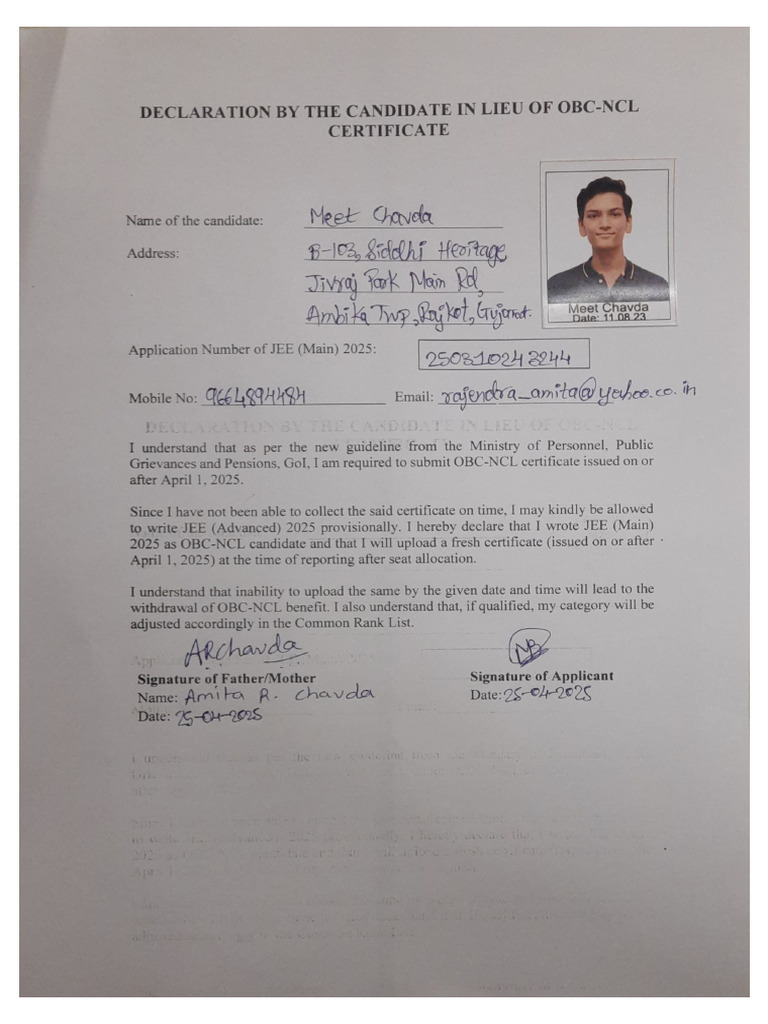 DECLARATION BY THE CANDIDATE IN LIEU OF OBC-NCL
CERTIFICATE
Name of the candidate: Meet Chavda
Address: B-103, Siddhi Heritage
Jivraj Park Main Rd,
Ambika Twp, Rajkot, Gujarat.
Meet Chavda
Date: 11.08.23
Application Number of JEE (Main) 2025: 250310243244
Mobile No: 9664894484 Email: rajendra_amita@yahoo.co.in
DECLARATION BY THE CANDIDATE IN LIEU OF OBC-NCL
I understand that as per the new guideline from the Ministry of Personnel, Public
Grievances and Pensions, GoI, I am required to submit OBC-NCL certificate issued on or
after April 1, 2025.
Since I have not been able to collect the said certificate on time, I may kindly be allowed
to write JEE (Advanced) 2025 provisionally. I hereby declare that I wrote JEE (Main)
2025 as OBC-NCL candidate and that I will upload a fresh certificate (issued on or after
April 1, 2025) at the time of reporting after seat allocation.
I understand that inability to upload the same by the given date and time will lead to the
withdrawal of OBC-NCL benefit. I also understand that, if qualified, my category will be
adjusted accordingly in the Common Rank List.
ARChavda
Signature of Father/Mother Signature of Applicant
Name: Amita R. Chavda Date: 25-04-2025
Date: 25-04-2025